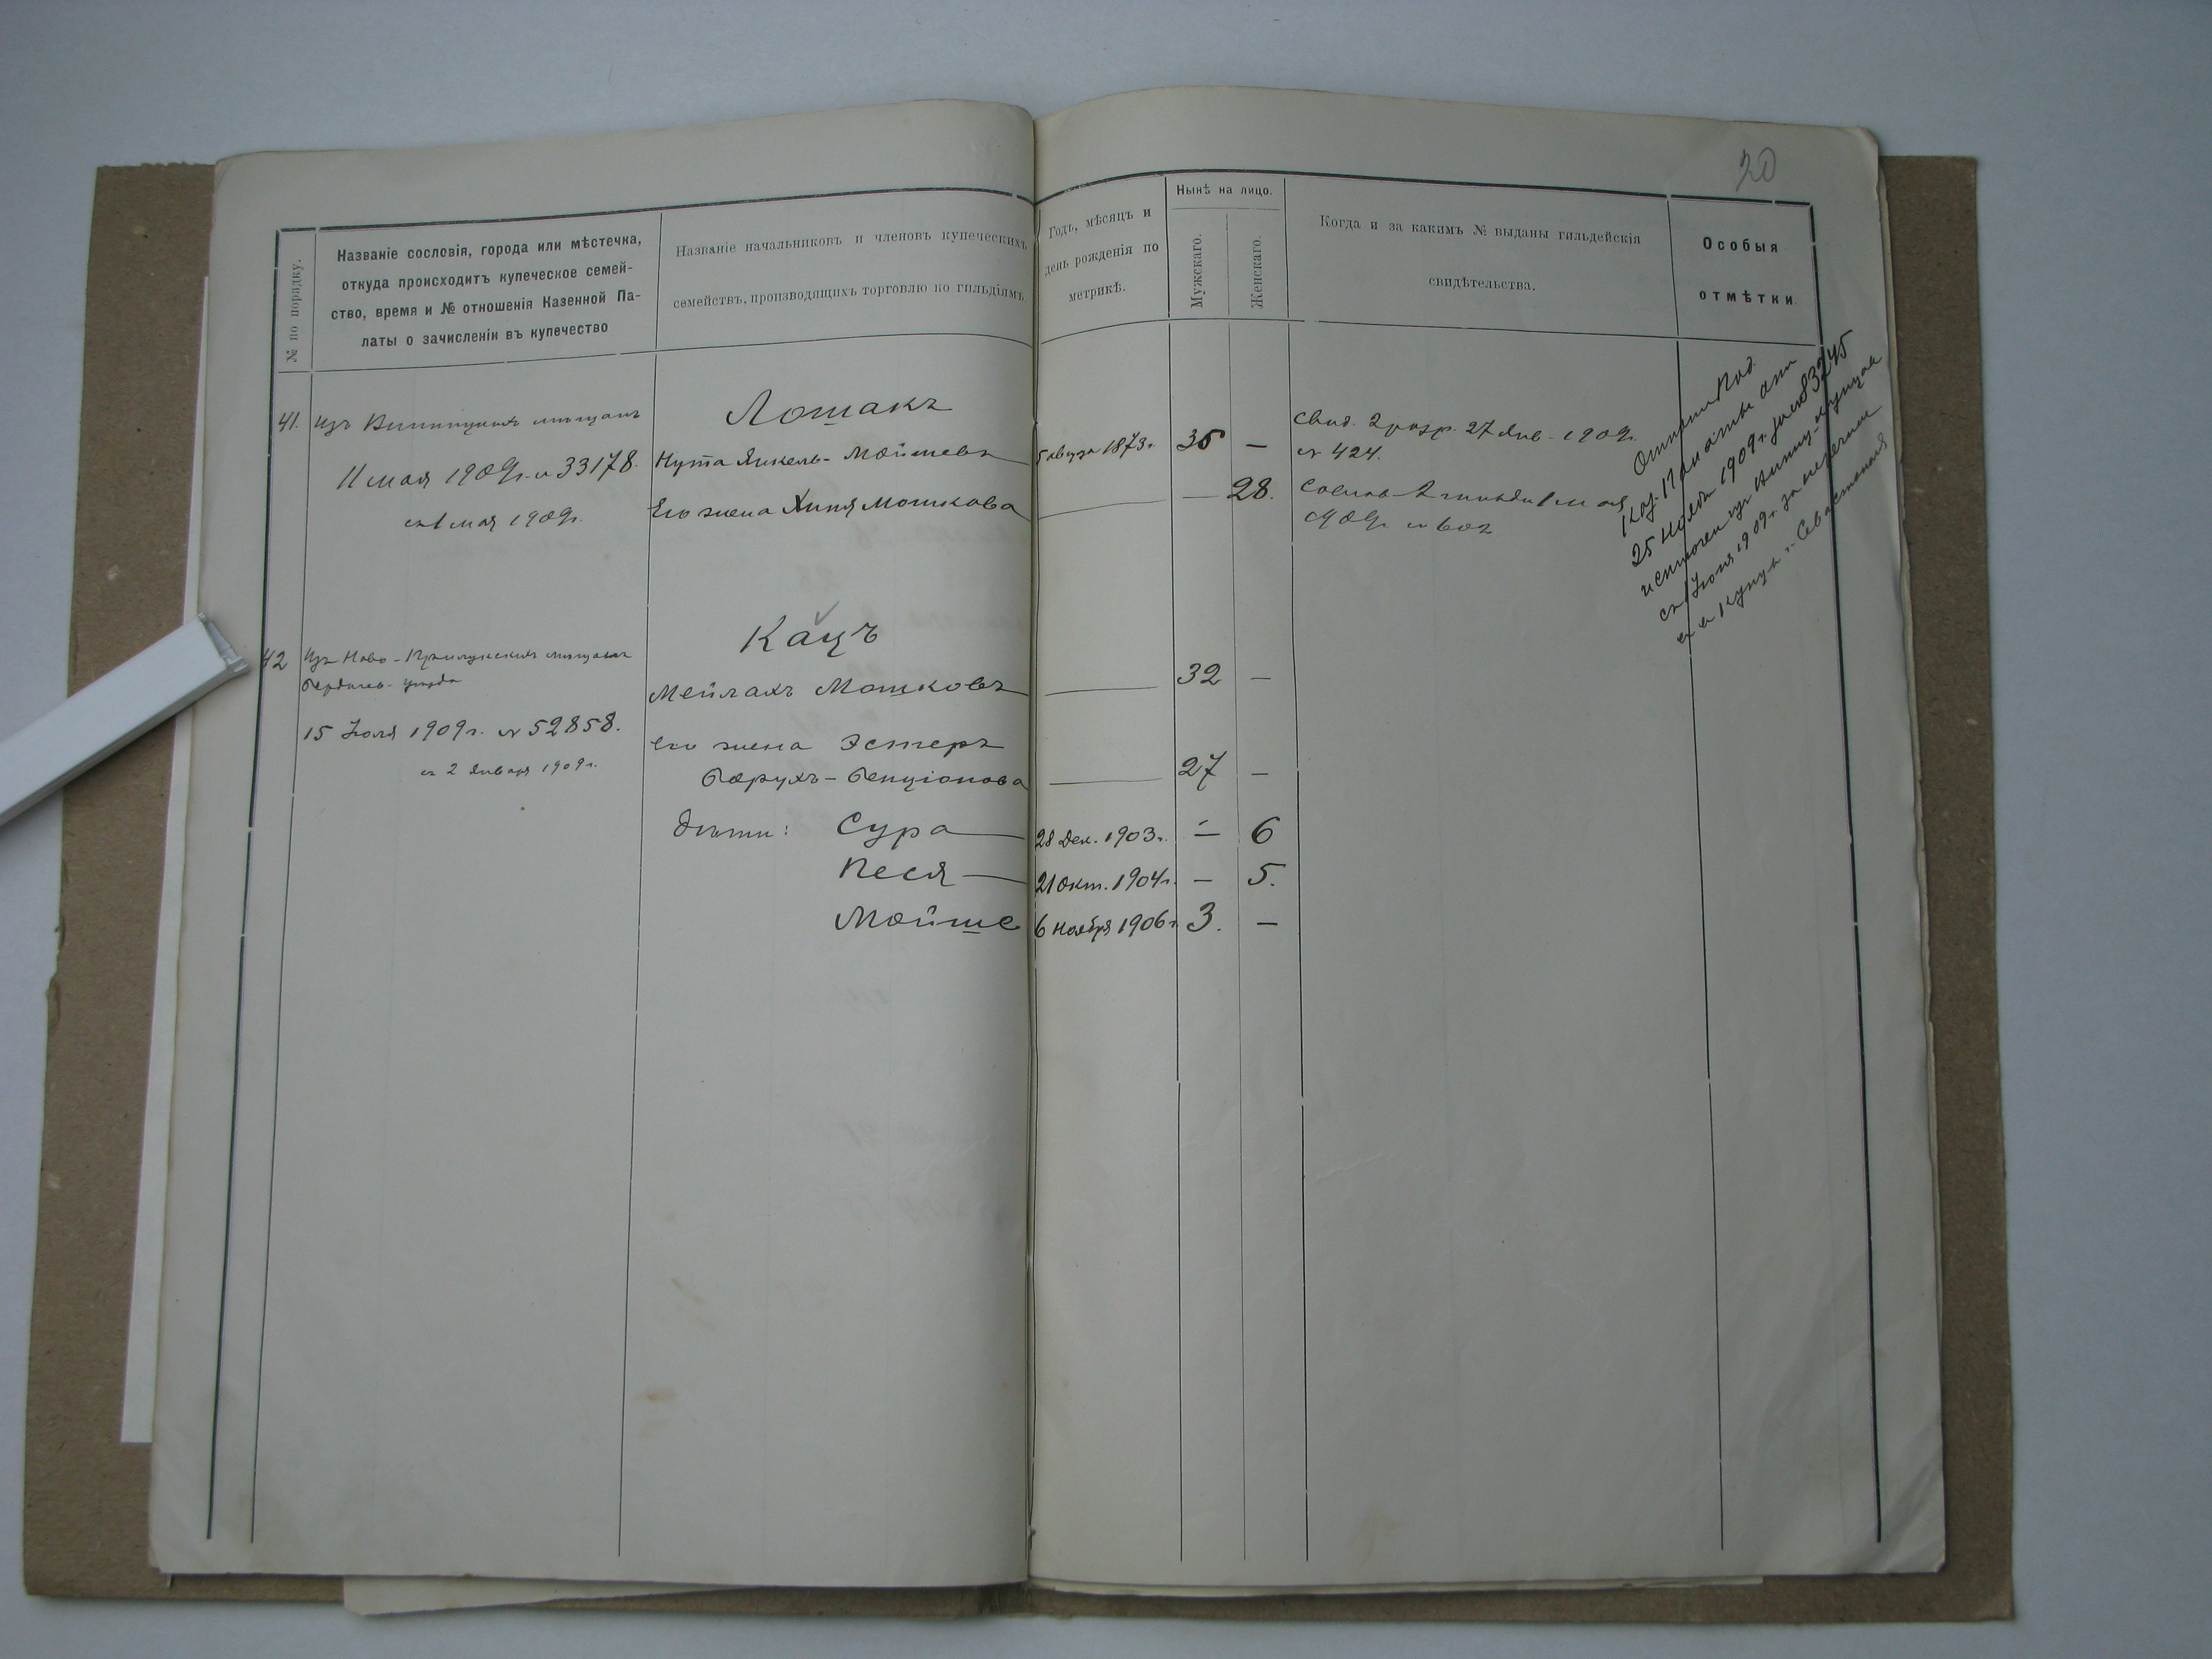 20
№ по порядку.
Названіе сословія, города или мѣстечка,
откуда происходитъ купеческое семей-
ство, время и № отношенія Казенной Па-
латы о зачисленіи въ купечество
Названіе начальниковъ и членовъ купеческихъ
семействъ, производящихъ торговлю по гильдіямъ
Годъ, мѣсяцъ и
день рожденія по
метрикѣ.
Нынѣ на лицо.
Мужскаго.
Женскаго.
Когда и за какимъ № выданы гильдейскія
свидѣтельства.
Особыя
отмѣтки.
41.
изъ Винницкихъ мѣщанъ
11 мая 1909 г. № 33178.
съ 1 мая 1909 г.
Лошакъ
Нута Янкель-Мойшевъ
5 августа 1873 г.
35 —
Его жена Хиня Мошкова
— 28.
Свид. 2 разр. 27 Янв. 1909 г.
№ 424.
2 гильдіи 1 мая
1909 г. № 602
Каз. Палаты отъ
25 Ноября 1909 г. за № 83245
исключенъ изъ Винниц. купцовъ
съ 1 Іюня 1909 г. за перечисл.
въ купцы г. Севастополя
42
Изъ Ново-Прилукскихъ мѣщанъ
Бердичев. уѣзда
15 Іюля 1909 г. № 52858.
съ 2 Января 1909 г.
Кацъ
Мейлахъ Мошковъ
32 —
его жена Эстеръ
Борухъ-Бенціонова
27 —
дѣти: Сура
28 Дек. 1903 г. — 6
Песя
21 Окт. 1904 г. — 5.
Мойше
6 Ноября 1906 г. 3. —